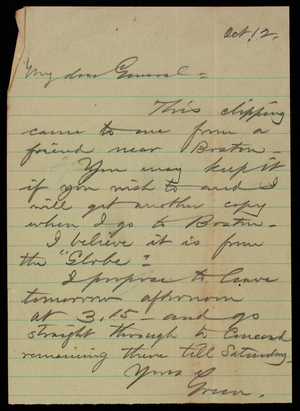 Oct. 12.
My dear General =
This clipping
came to me from a
friend near Boston -
You may keep it
if you wish to and I
will get another copy
when I go to Boston -
I believe it is from
the "Globe".
I propose to leave
tomorrow afternoon
at 3.15 - and go
straight through to Concord
remaining there till Saturday.
Yours
Green.